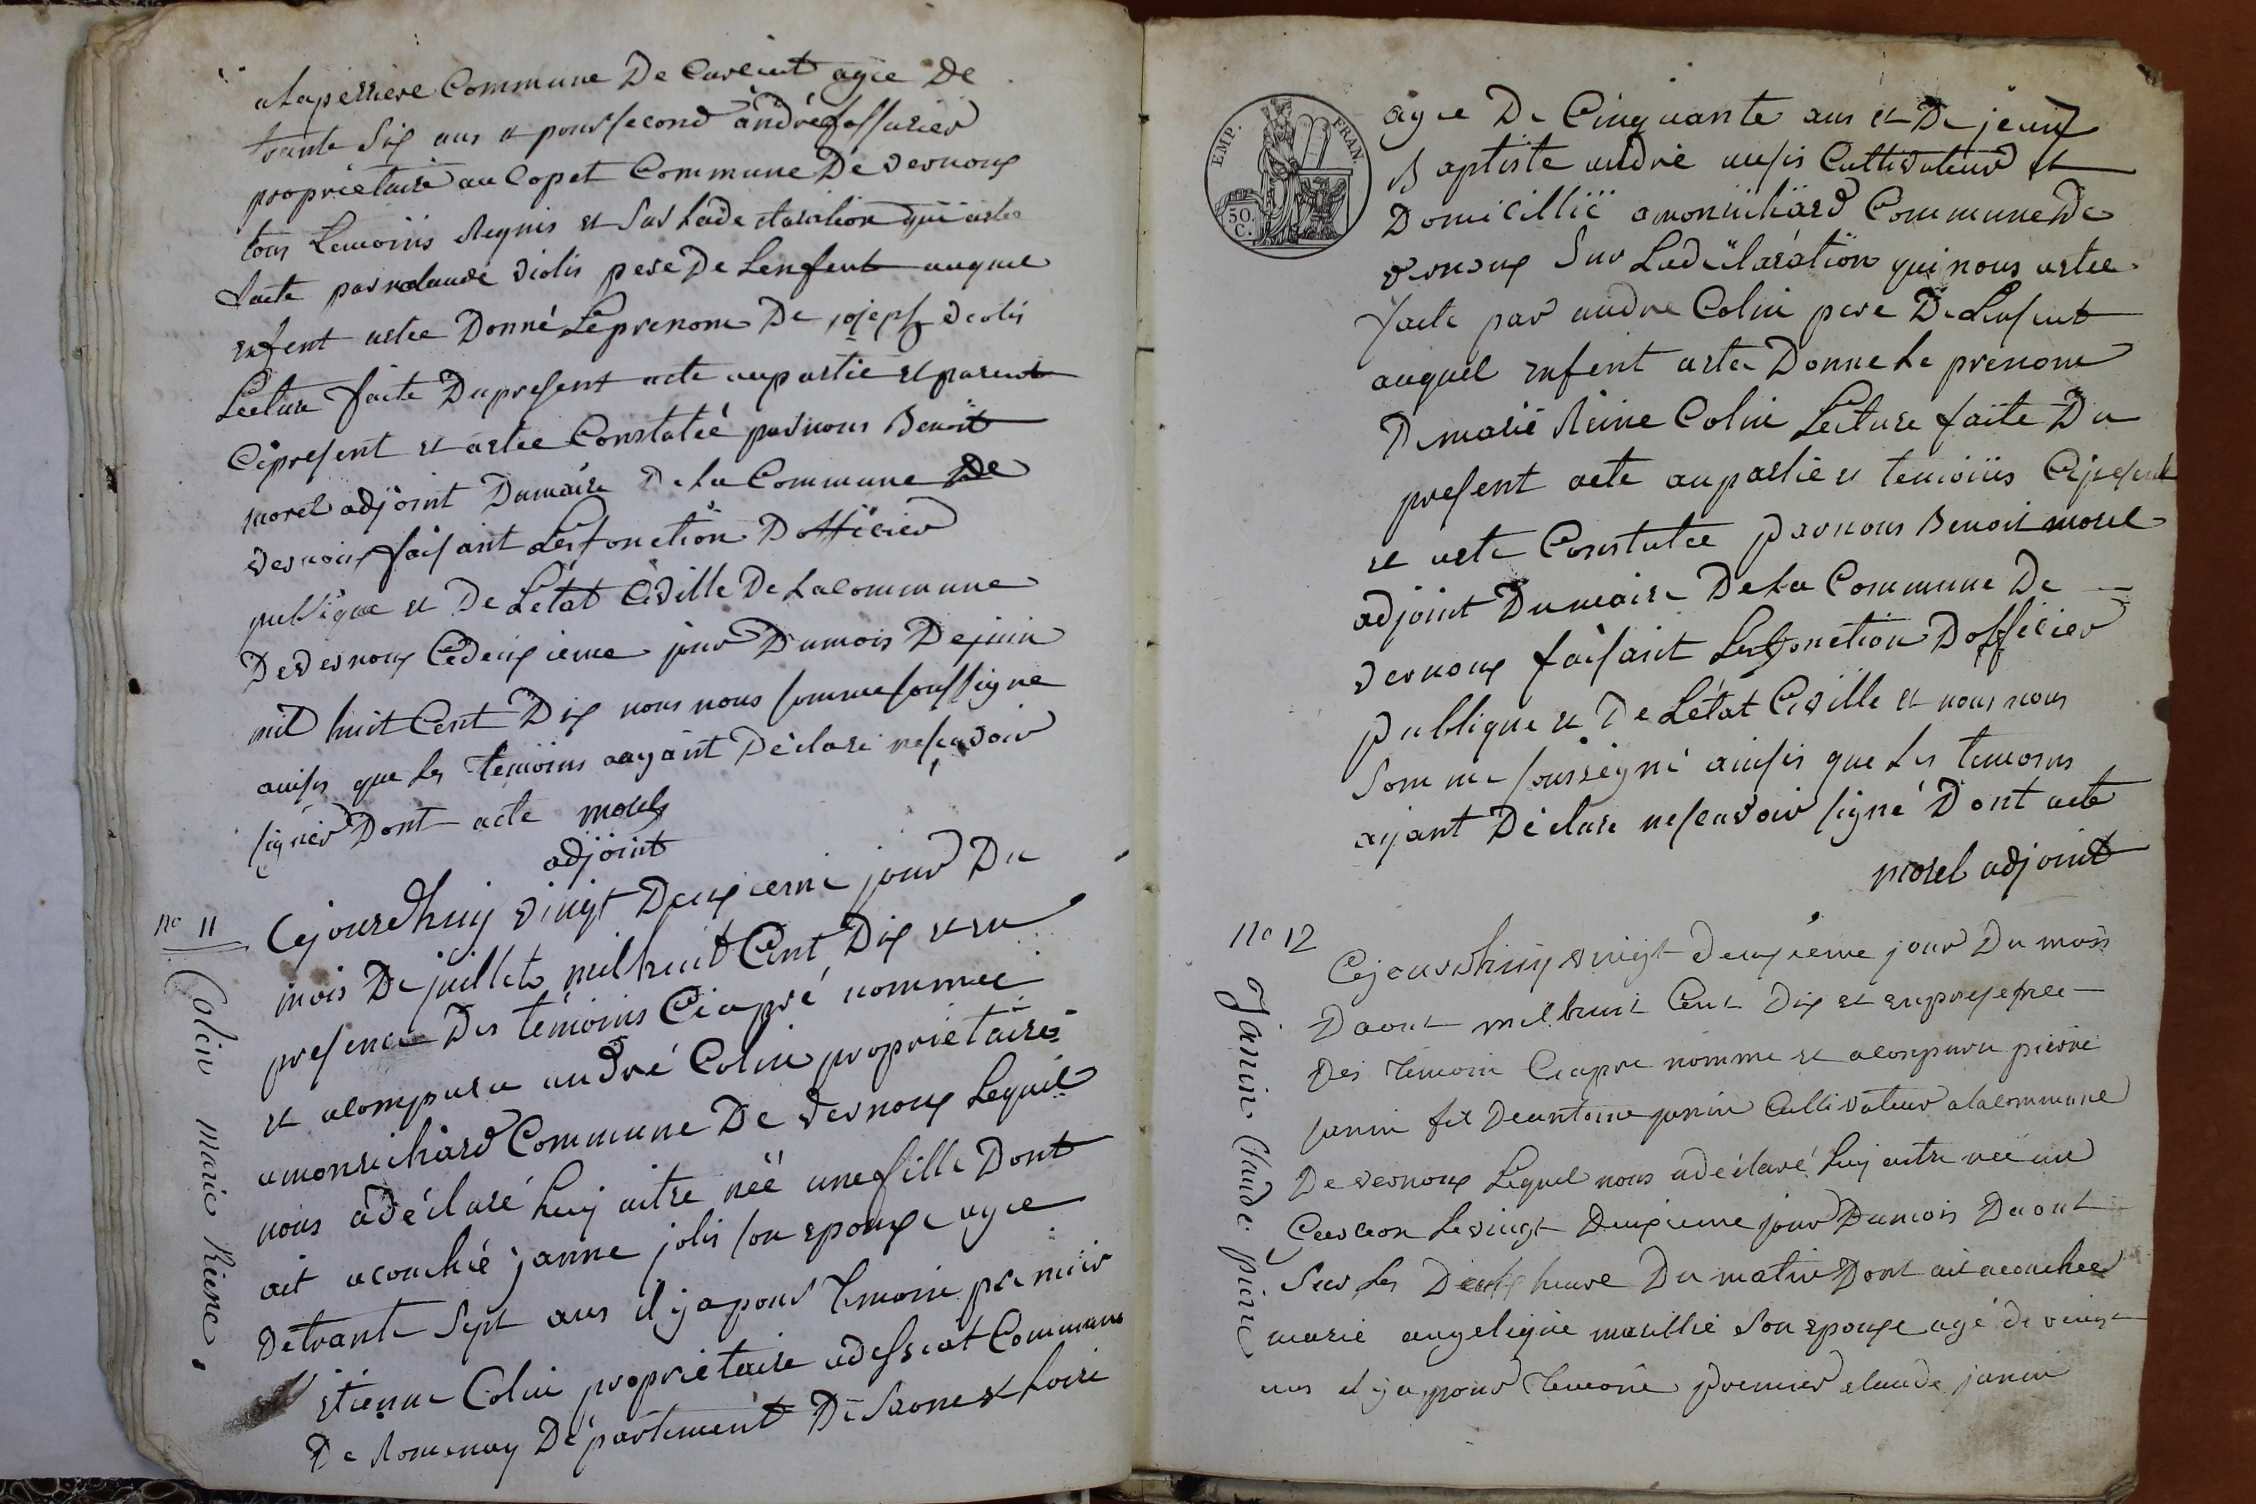 alaperriere Commune De Cureint agée De
trante Six ans et pour second andré fossurier
propriétaire au Copet Commune De vernoux
tous temoins Requis et Sur la declaration qui a etée
faite par claude violis pere De Lenfent auquel
enfent a etée Donné Le prenom De joseph violis
Lecture faite Du present acte au partie et parent
Cy present et a etée Constatée par nous Benoit
morel adjoint Dumaire De la Commune De
vernoux faisant Les fonction Dofficier
publique et De Létat Civille De la commune
De vernoux Ce deuxieme jour Dumois De juin
mil huit Cent Dix nous nous somme soussigne
ainsis que les temoins aÿant Déclaré ne scavoir
signér Dont acte morel
adjoint
no 11
Colin marie Riene
Cejourdhuy vingt Deuxieme jour Du
mois De juillet milhuit Cent Dix et en
presence Des témoins Ci aprés nommée
et a comparu andré Colin propriétaire
a monrichard Commune De vernoux Lequel
nous a déclaré luy aitre néé une fille Dont
ait acouchée janne jolis son epouxe agée
De trante Sept ans il y a pour temoin premier
étienne Colin propriétaire a dessreat Commune
De Romenay Département De Saone et Loire
EMP. FRAN.
50. C.
agée De Cinquante ans et De jean
Baptiste andrée aussis Cultivateur et
Domicillié a monrichard Commune De
vernoux Sur La déclaration qui nous a etée
faite par andre Colin pere De Lenfent
auquel enfent a ete Donne le prenom
De marie Reine Colin Lecture faite Du
present acte au partie et temoins Cy present
et a ete Constatée par nous Benoit morel
adjoint Dumaire De la Commune De
vernoux faisant Les fonction Dofficier
publique et De Létat Civille et nous nous
Somme soussigné ainsis que les temoins
aÿant Déclaré ne scavoir signé Dont acte
morel adjoint
no 12
Janin Claude pierre
Cejourdhuy vingt deuxieme jour Du mois
Daout mil huit Cent Dix et en presence
Des temoin Ci apre nomme et a comparu pierre
janin fil De antoine janin Cultivateur a la commune
De vernoux Lequel nous a déclaré luy aitre néé un
Garceon Le vingt Deuxieme jour Dumois Daout
Sur les Deux heure Du matin Dont ait acouchée
marie angelique marillié Son epouxe agé de vingt
ans il y a pour temoin premier claude janin